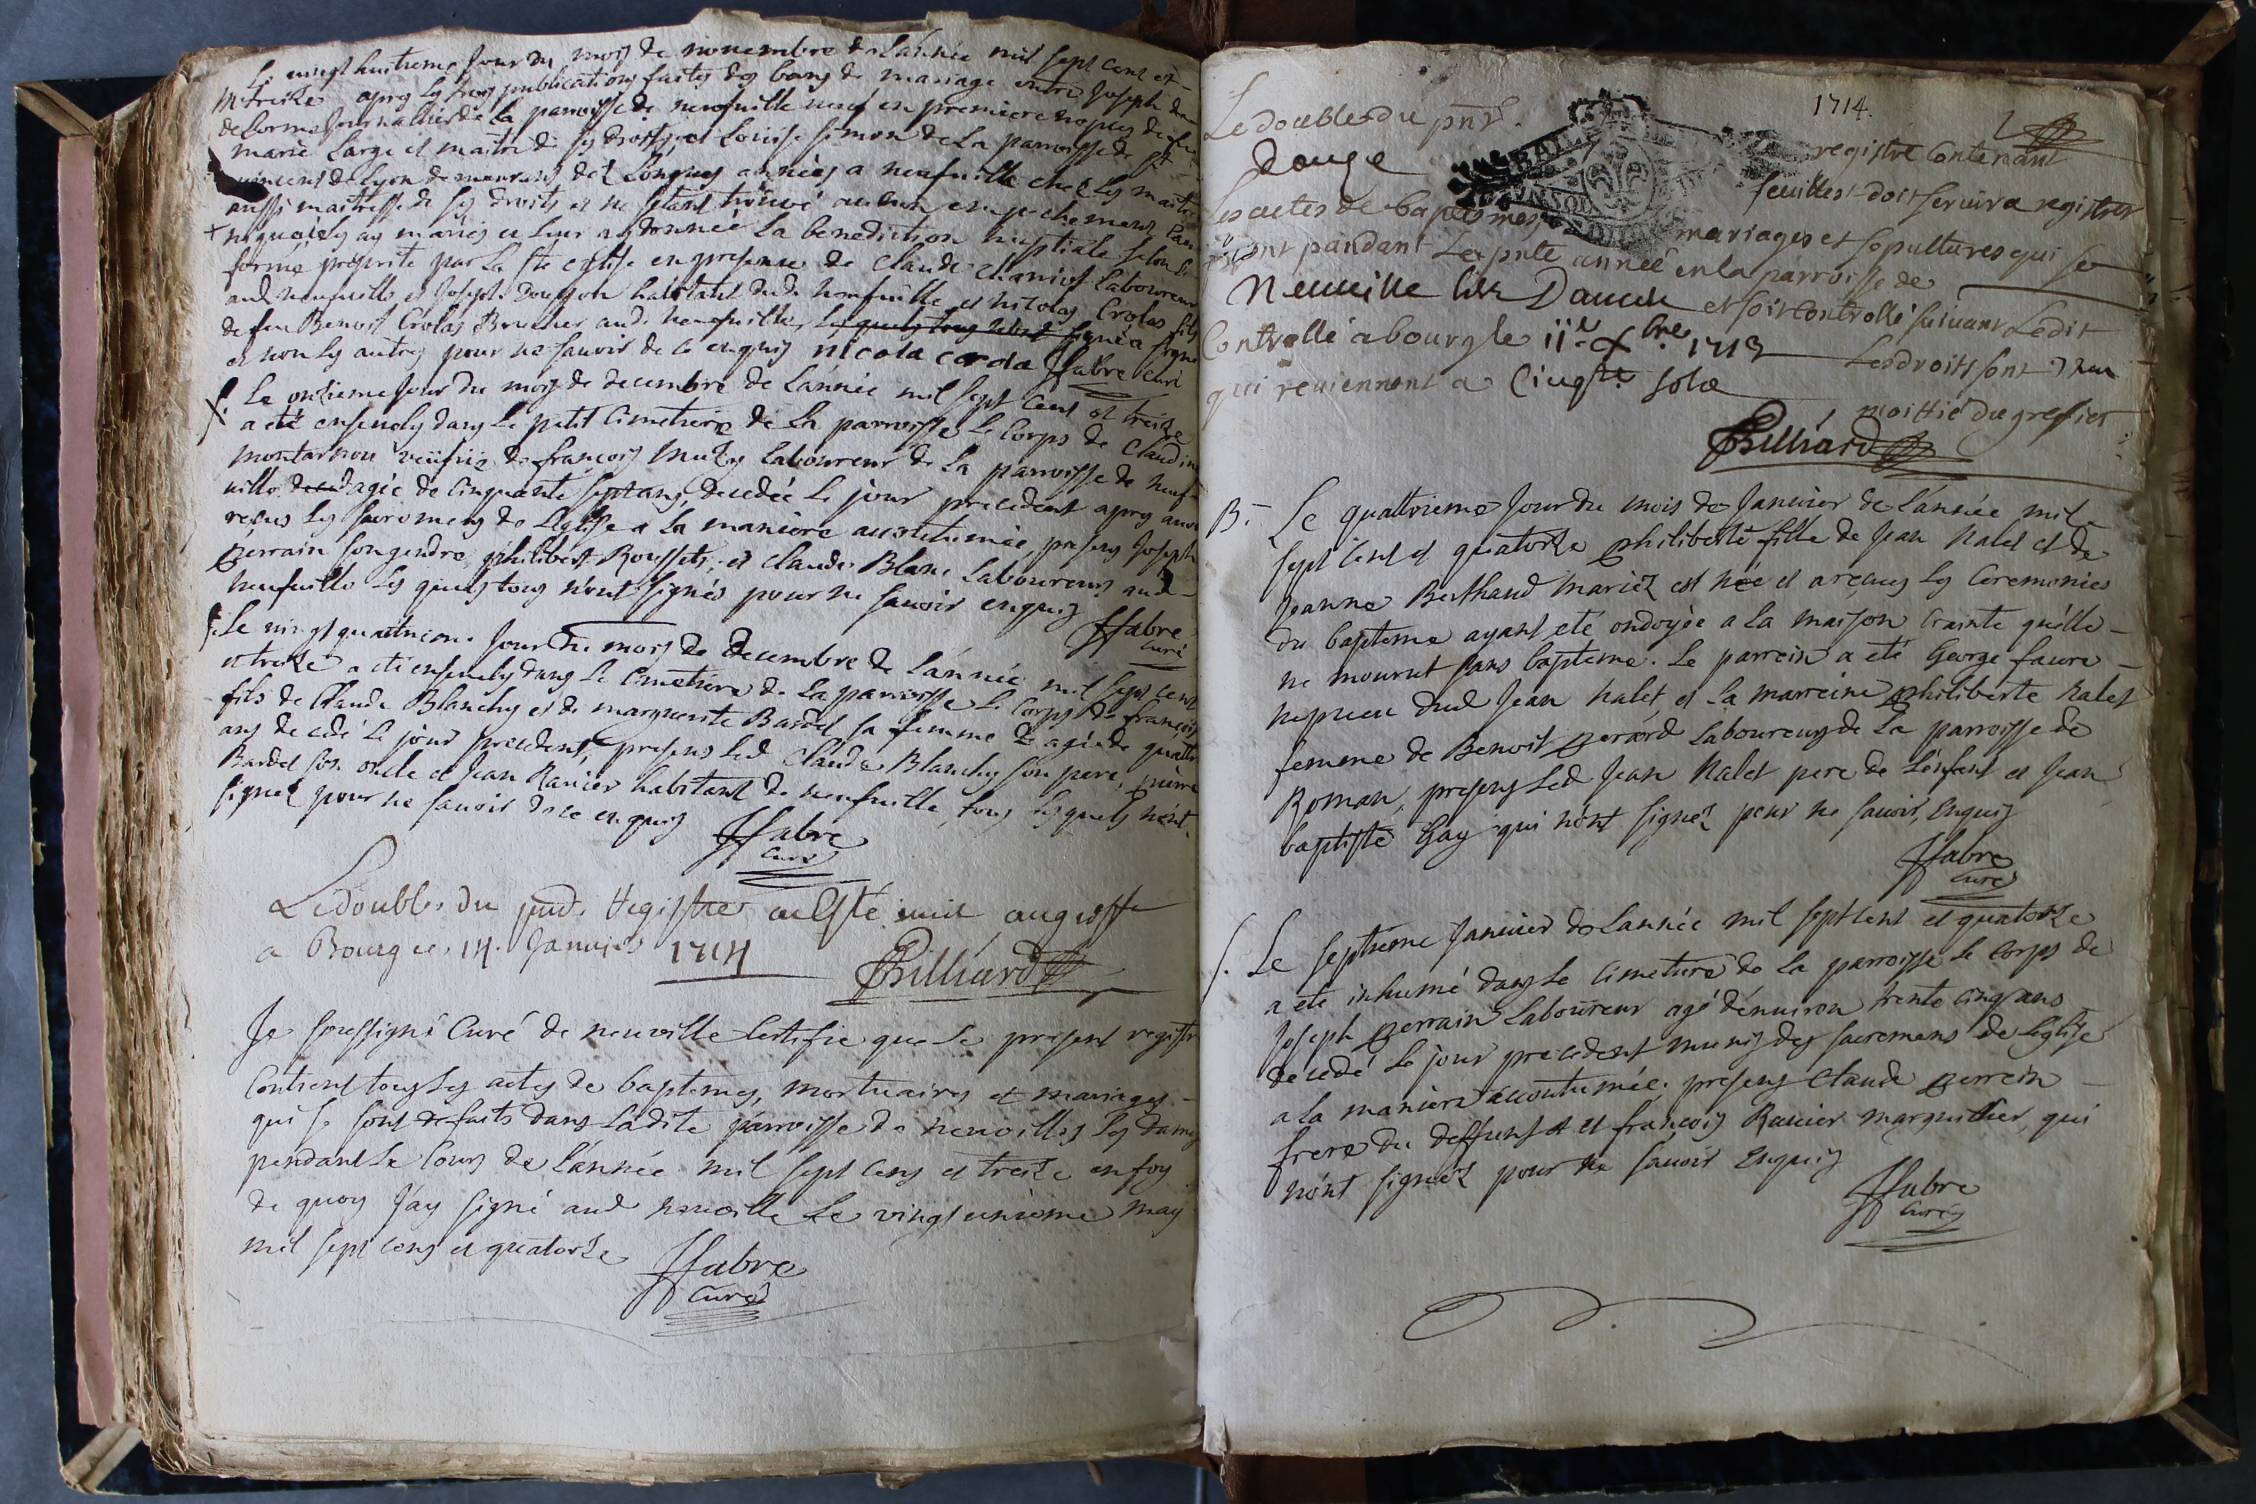 Le vingt huitieme Jour du mois de novembre de Lannée mil sept cent et
M. treize apres les trois publications faites des bans de mariage entre Joseph de
delorme Journallier de la parroisse de neufuille neuf en premiere nopces de feu
marie Large et maitre de ses droits, et Louise simon de La parroisse de St
vincent de Lyon demeurans dez Longues années a neufuille chez les maitre
aussi maitresse de ses droits et ne s'etant trouvé aucun empechement
+ je les ay mariés et leur ay donnée La benediction nuptiale selon la
forme prescrite par La ste eglise en presence de Claude Laboureur
aud. neufuille et Joseph habitant dud. neufuille et nicolas Crolas fils
de feu Benoist Crolas aud. neufuille, les quels tous signé
et non les autres pour ne scavoir de ce enquis nicola corda ffabre curé
Le onzieme Jour du mois de decembre de Lannée mil sept cent et treize
a eté enseuely dans Le petit Cimetiere de La parroisse Le Corps de Claudine
montarnou veüfue de françois Laboureur de La parroisse de neuf-
uille agée de cinquante sept ans, decedée Le jour precedent apres avoir
reçus Les sacremens de L'eglise a La maniere accoutumée, presens Joseph
perrain son gendre, philibert Roussets, et Claude Blanc Laboureurs aud.
neufuille Les quels tous n'ont signés pour ne scavoir enquis ffabre
curé
Le vingt quatrieme Jour du mois de Decembre de Lannée mil sept cent
et treize a eté enseuely dans Le Cimetiere de La parroisse Le Corps de françois
fils de Claude Blanchy et de marguerite Bardel sa femme agé de quattre
ans decedé Le jour precedent, presens Led. Claude Blanchy son pere, pierre
Bardel son oncle et Jean Ravier habitant de neufuille, tous Lesquels n'ont
signez pour ne scavoir de ce enquis ffabre
curé
Le double du pnd. Registre a Esté mis au greffe
a Bourg ce 14. Januier 1714 Billiard
Je soussigné Curé de neuville Certifie que Le present registre
Contient tous Les actes de baptemes, mortuaires et mariages
qui se sont faits dans Ladite parroisse de neuville les dames
pendant Le Cours de L'année mil sept cens et treize en foy
de quoy J'ay signé aud. neuville Le vingt unieme may
mil sept cens et quatorze ffabre
curé
1714
Le double du pnt. registre Contenant
douze feuillets doit seruir a registrer
Les actes de baptesmes mariages et sepultures qui se
feront pandant La pnte année en la parroisse de
Neuville les Dames et soit controllé suiuant Ledit
Controllé a bourg le 11e xbre 1713 Les droits sont
qui reviennent a Cinqte sols moittié du greffier
Billiard
B. Le quattrieme Jour du mois de Janvier de L'année mil
sept Cent et quatorze philiberte fille de Jean Nalet et de
Jeanne Berthaud mariez est née et a reçue les Ceremonies
du bapteme ayant eté ondoyée a La maison Crainte qu'elle
ne mourut sans bapteme. Le parrein a eté George faure
nepueu dud. Jean Nalet et La marreine philiberte Nalet
femme de Benoit perard Laboureurs de La parroisse de
Roman, presens Led. Jean Nalet pere de L'enfant et Jean
baptiste Gay qui n'ont signez pour ne scavoir, Enquis
ffabre
curé
S. Le septieme Janvier de Lannée mil sept cent et quatorze
a eté inhumé dans Le Cimetiere de La parroisse Le Corps de
Joseph perrain Laboureur agé d'enuiron trente cinq ans
decedé Le jour precedent munis des sacremens de L'eglise
a la maniere accoutumée, presens Claude perrein
frere du deffunt et françois Ravier marguillier, qui
n'ont signez pour ne scavoir Enquis
ffabre
curé